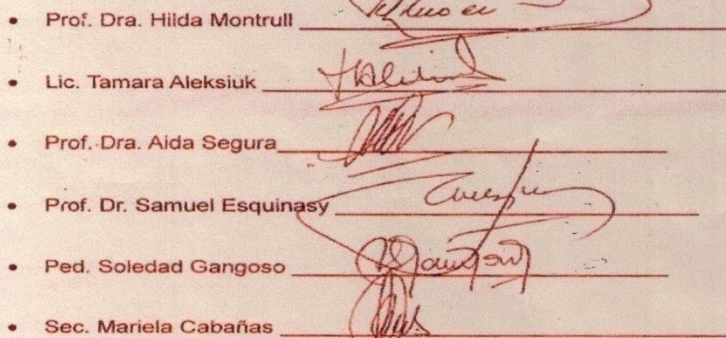 • Prof. Dra. Hilda Montrull
• Lic. Tamara Aleksiuk
• Prof. Dra. Aida Segura
• Prof. Dr. Samuel Esquinasy
• Ped. Soledad Gangoso
• Sec. Mariela Cabañas